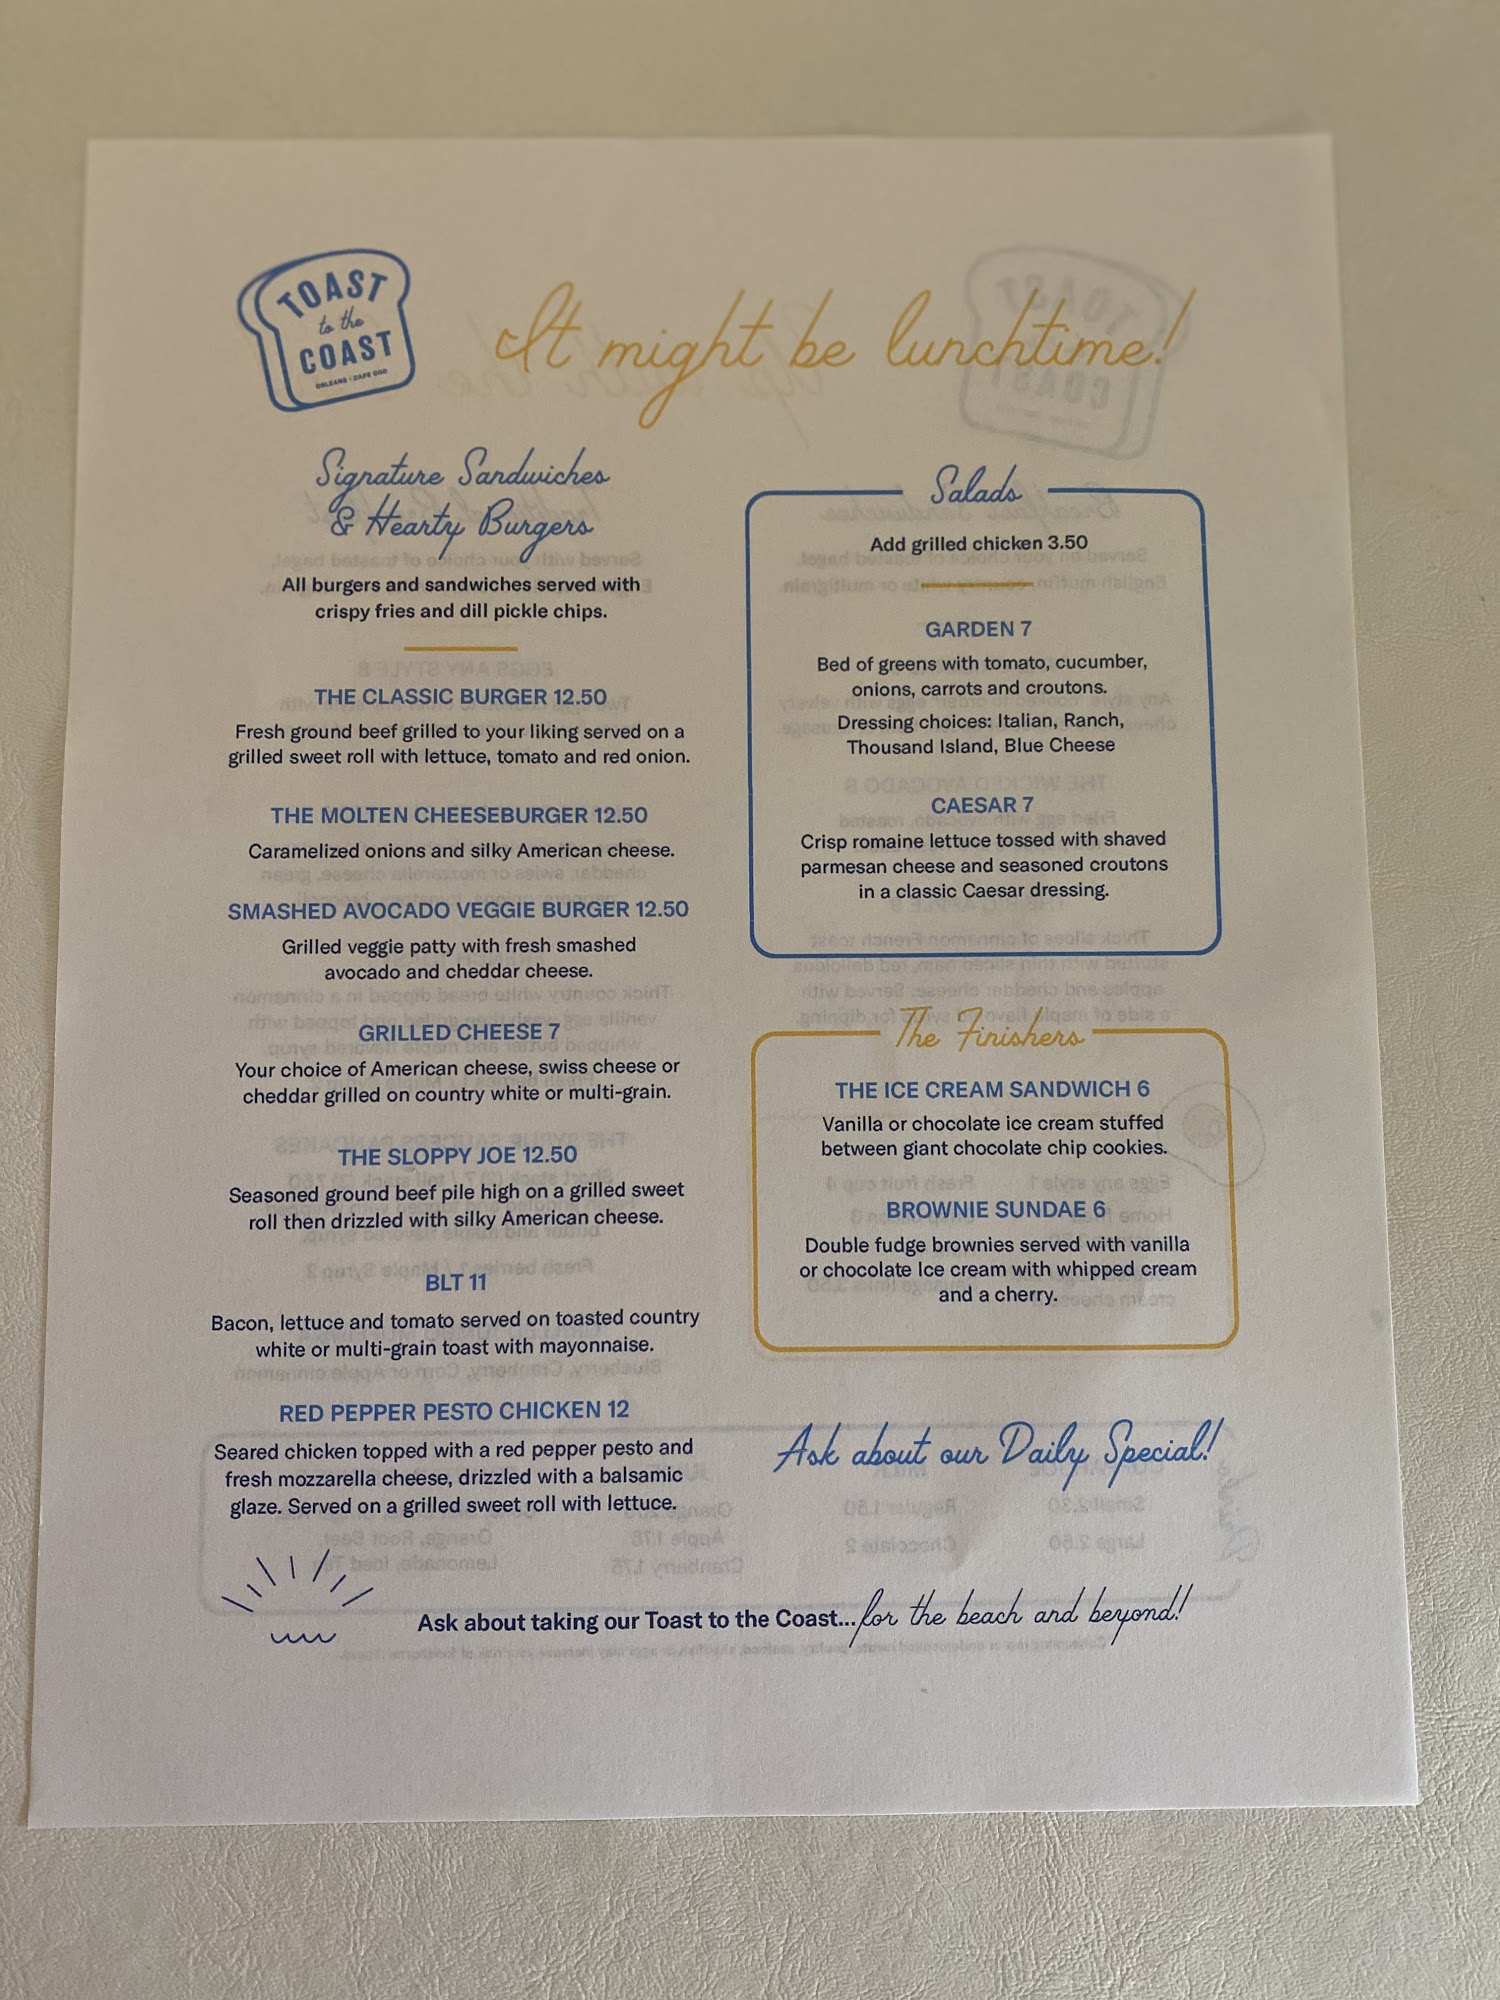 TOAST
to the
COAST
ORLEANS • CAPE COD
It might be lunchtime!
Signature Sandwiches
& Hearty Burgers
All burgers and sandwiches served with
crispy fries and dill pickle chips.
THE CLASSIC BURGER 12.50
Fresh ground beef grilled to your liking served on a
grilled sweet roll with lettuce, tomato and red onion.
THE MOLTEN CHEESEBURGER 12.50
Caramelized onions and silky American cheese.
SMASHED AVOCADO VEGGIE BURGER 12.50
Grilled veggie patty with fresh smashed
avocado and cheddar cheese.
GRILLED CHEESE 7
Your choice of American cheese, swiss cheese or
cheddar grilled on country white or multi-grain.
THE SLOPPY JOE 12.50
Seasoned ground beef pile high on a grilled sweet
roll then drizzled with silky American cheese.
BLT 11
Bacon, lettuce and tomato served on toasted country
white or multi-grain toast with mayonnaise.
RED PEPPER PESTO CHICKEN 12
Seared chicken topped with a red pepper pesto and
fresh mozzarella cheese, drizzled with a balsamic
glaze. Served on a grilled sweet roll with lettuce.
Salads
Add grilled chicken 3.50
GARDEN 7
Bed of greens with tomato, cucumber,
onions, carrots and croutons.
Dressing choices: Italian, Ranch,
Thousand Island, Blue Cheese
CAESAR 7
Crisp romaine lettuce tossed with shaved
parmesan cheese and seasoned croutons
in a classic Caesar dressing.
The Finishers
THE ICE CREAM SANDWICH 6
Vanilla or chocolate ice cream stuffed
between giant chocolate chip cookies.
BROWNIE SUNDAE 6
Double fudge brownies served with vanilla
or chocolate Ice cream with whipped cream
and a cherry.
Ask about our Daily Special!
Ask about taking our Toast to the Coast...for the beach and beyond!